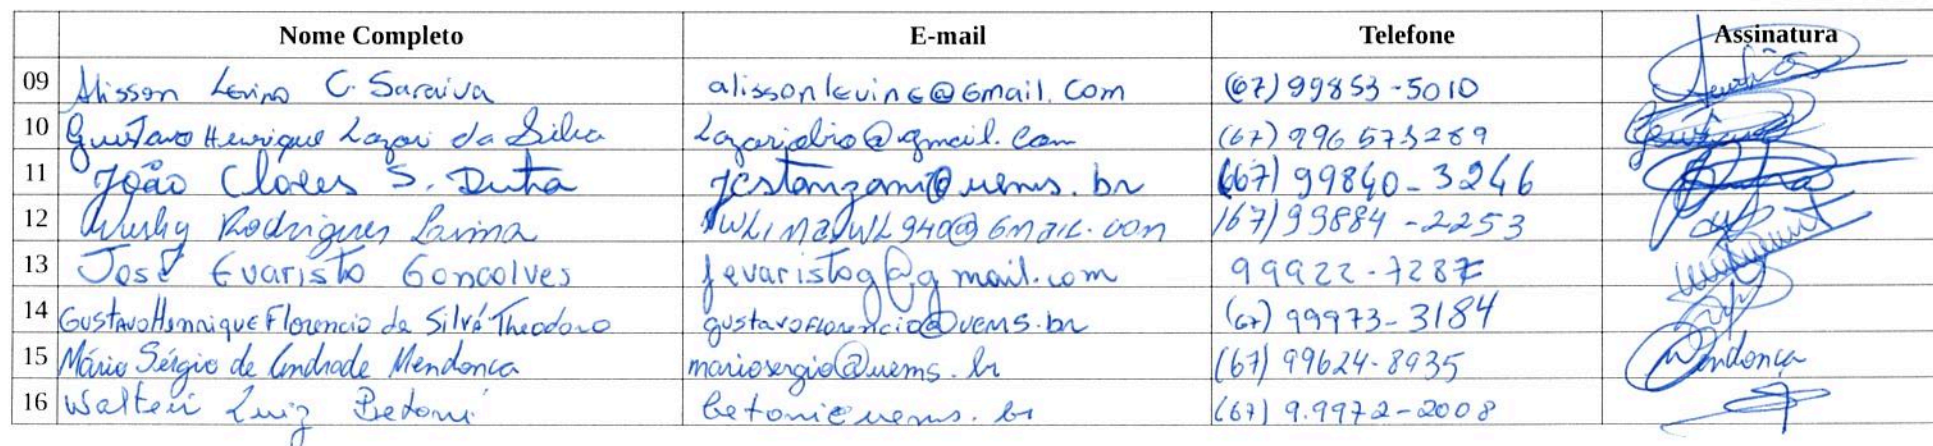 Nome Completo E-mail Telefone Assinatura
09 Alisson Levino C. Saraiva alissonlevino@Gmail.com (67) 99853-5010
10 Gustavo Henrique Lazari da Silva (67) 996573289
11 João Clores S. Dutra jcstanzani@uems.br (67) 99840-3246
12 Rodrigues Lima (67) 99884-2253
13 José Evaristo Goncolves jevaristog@gmail.com 99922-7287
14 Gustavo Hennrique Florencio da Silva Theodoro gustavoflorencio@uems.br (67) 99973-3184
15 Mário Sérgio de Andrade Mendonca mariosergio@uems.br (67) 99624-8935 Mendonca
16 Luiz Betoni betoni@uems.br (67) 9.9972-2008